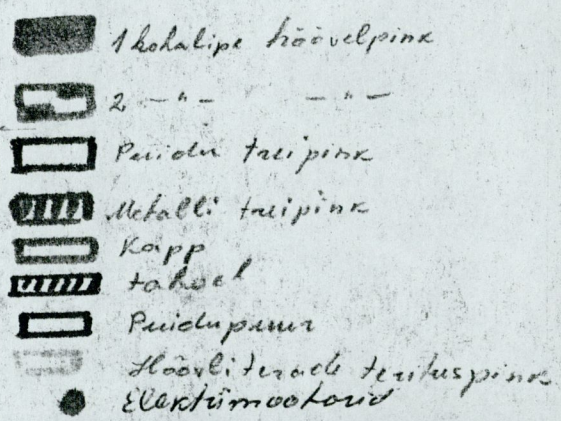 1 kohalipe höövelpink
2 — " — — " —
Puidu treipink
Metalli treipink
Kapp
tahvel
Puidupuur
Höövliterade terituspink
Elektrimootorid